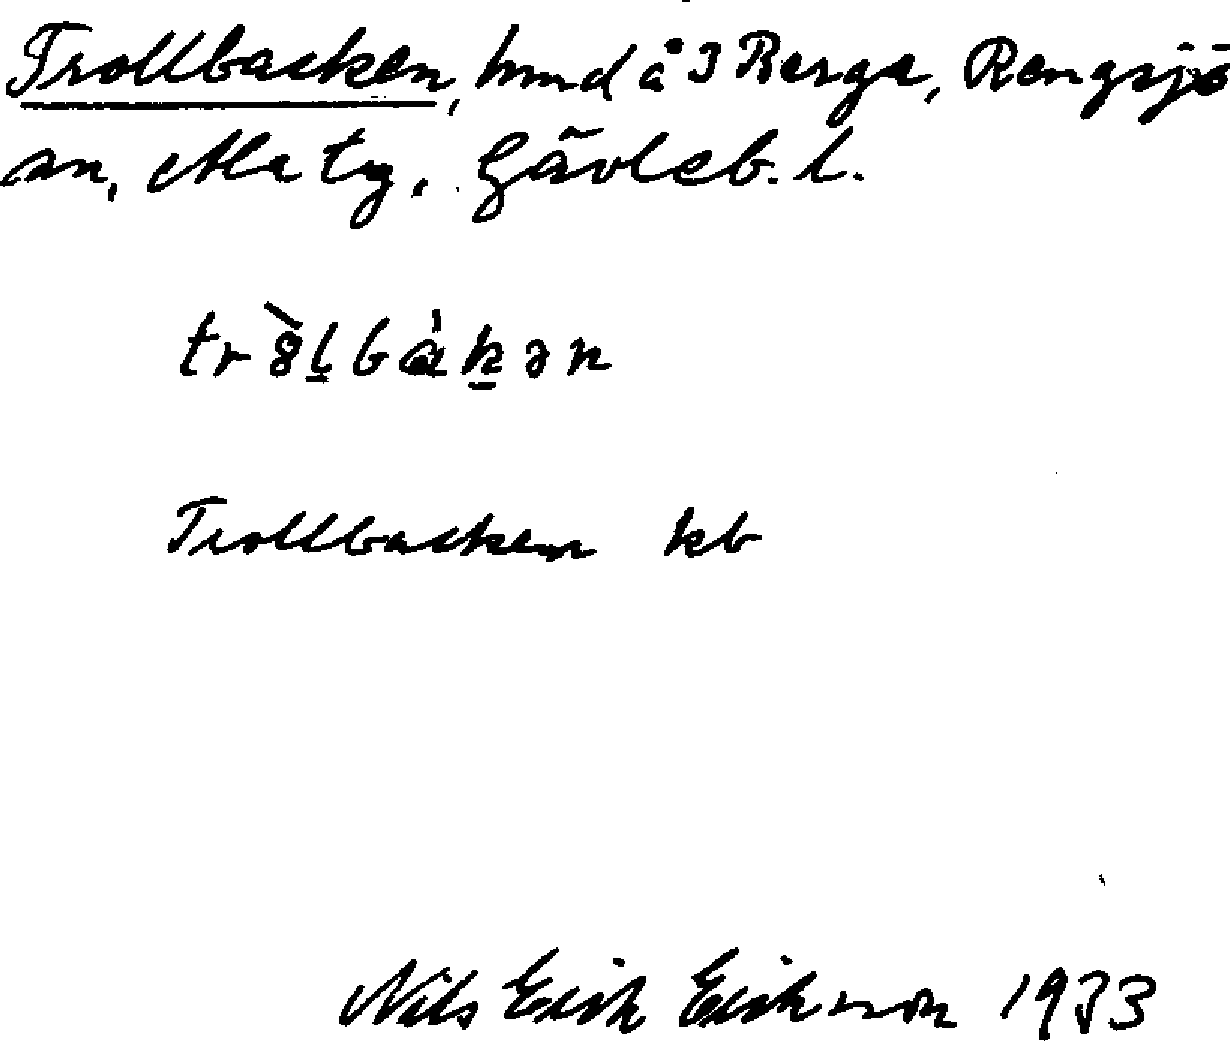 Trollbacken, hmd å 3 Berga, Rengsjö
sn, Ala tg, Gävleb. l.
trò8l̠bàk̠ən
Trollbacken kb
Nils Erik Eriksson 1933